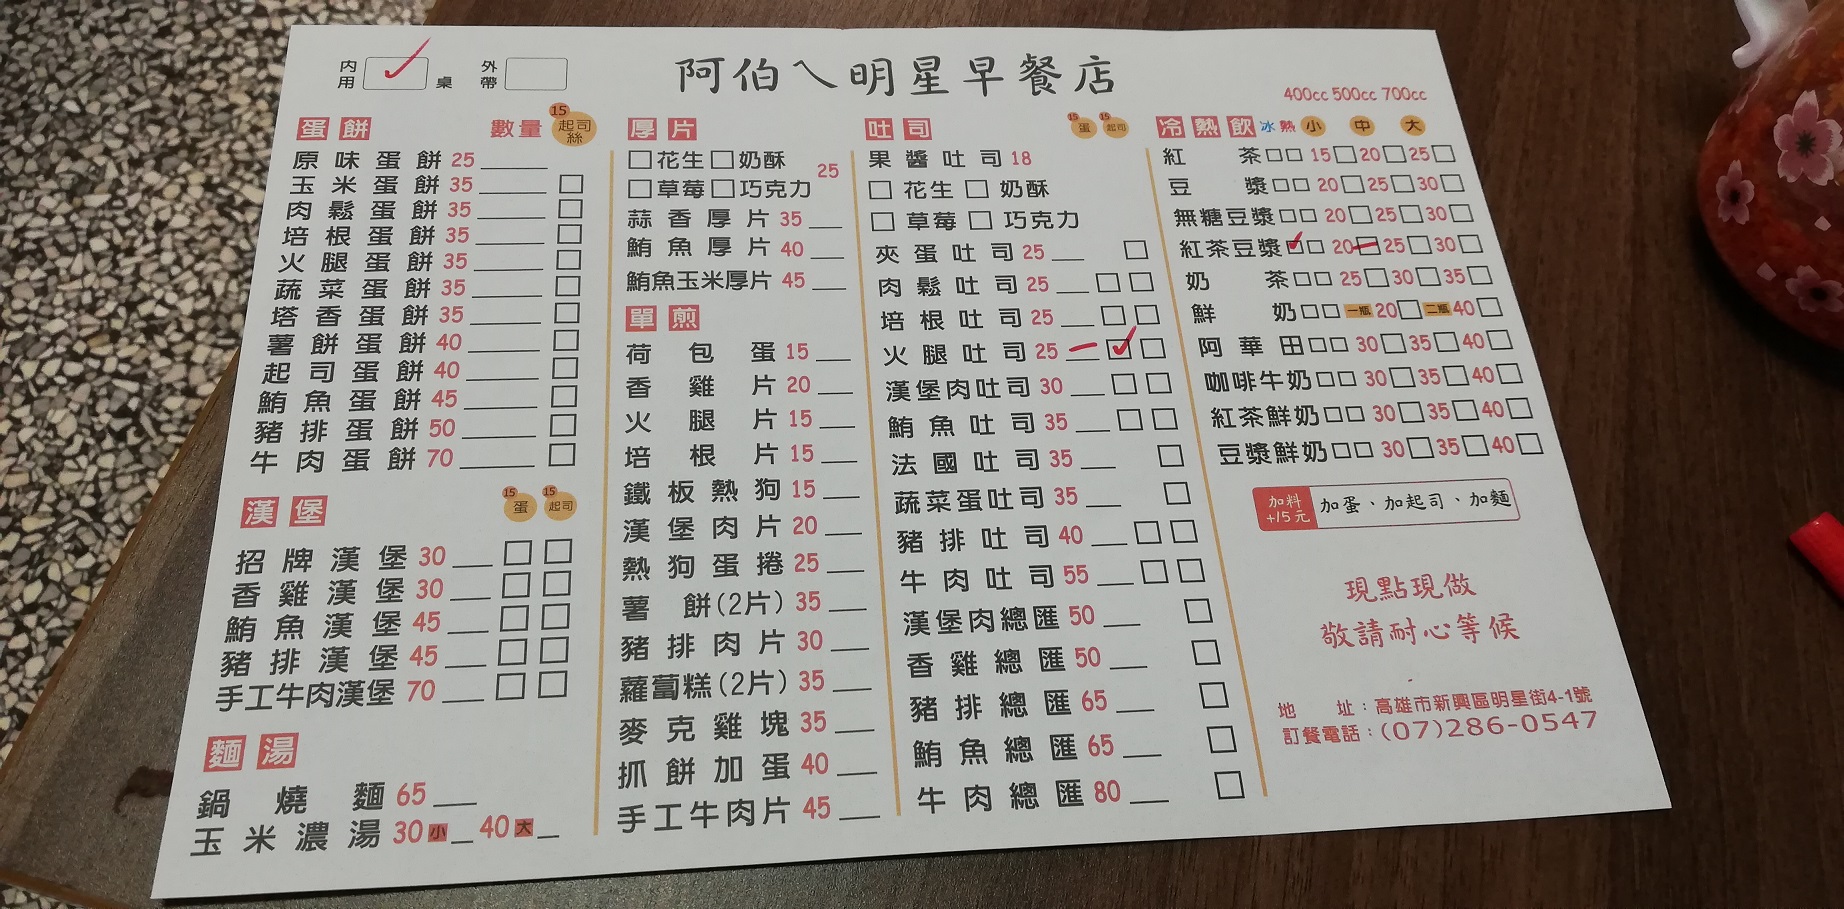 內用 桌 外帶
阿伯ㄟ明星早餐店
蛋餅 數量 15 起司絲
原味蛋餅 25
玉米蛋餅 35
肉鬆蛋餅 35
培根蛋餅 35
火腿蛋餅 35
蔬菜蛋餅 35
塔香蛋餅 35
薯餅蛋餅 40
起司蛋餅 40
鮪魚蛋餅 45
豬排蛋餅 50
牛肉蛋餅 70
漢堡 15 蛋 15 起司
招牌漢堡 30
香雞漢堡 30
鮪魚漢堡 45
豬排漢堡 45
手工牛肉漢堡 70
麵湯
鍋燒麵 65
玉米濃湯 30 小 40 大
厚片
花生 奶酥 25
草莓 巧克力
蒜香厚片 35
鮪魚厚片 40
鮪魚玉米厚片 45
單煎
荷包蛋 15
香雞片 20
火腿片 15
培根片 15
鐵板熱狗 15
漢堡肉片 20
熱狗蛋捲 25
薯餅(2片) 35
豬排肉片 30
蘿蔔糕(2片) 35
麥克雞塊 35
抓餅加蛋 40
手工牛肉片 45
吐司 15 蛋 15 起司
果醬吐司 18
花生 奶酥
草莓 巧克力
夾蛋吐司 25
肉鬆吐司 25
培根吐司 25
火腿吐司 25
漢堡肉吐司 30
鮪魚吐司 35
法國吐司 35
蔬菜蛋吐司 35
豬排吐司 40
牛肉吐司 55
漢堡肉總匯 50
香雞總匯 50
豬排總匯 65
鮪魚總匯 65
牛肉總匯 80
400cc 500cc 700cc
冷熱飲 冰 熱 小 中 大
紅茶 15 20 25
豆漿 20 25 30
無糖豆漿 20 25 30
紅茶豆漿 20 25 30
奶茶 25 30 35
鮮奶 一瓶 20 二瓶 40
阿華田 30 35 40
咖啡牛奶 30 35 40
紅茶鮮奶 30 35 40
豆漿鮮奶 30 35 40
加料 +15元 加蛋、加起司、加麵
現點現做
敬請耐心等候
地址：高雄市新興區明星街4-1號
訂餐電話：(07)286-0547